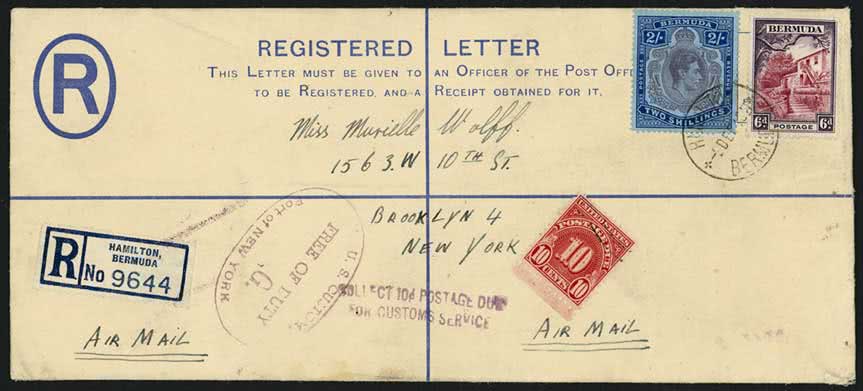 R
REGISTERED LETTER
THIS LETTER MUST BE GIVEN TO AN OFFICER OF THE POST OFF
TO BE REGISTERED, AND A RECEIPT OBTAINED FOR IT.
BERMUDA
2/- 2/-
POSTAGE REVENUE
TWO SHILLINGS
BERMUDA
6d 6d
POSTAGE
DE
BERMU
Miss Murielle Wolff.
1563.W 10TH ST.
BROOKLYN 4
NEW YORK
R
HAMILTON,
BERMUDA
No 9644
U. S. CUSTOM
FREE OF DUTY
G.
Port of NEW YORK
UNITED STATES
POSTAGE DUE
10
10 CENTS 10
COLLECT 10¢ POSTAGE DUE
FOR CUSTOMS SERVICE
AIR MAIL
AIR MAIL